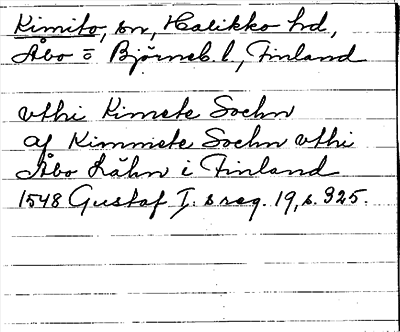 Kimito, sn, Halikko hd,
Åbo o Björneb. l, Finland
vthi Kimete Sochn
af Kimmete Sochn vthi
Åbo Lähn i Finland
1548 Gustaf I. s reg. 19, s. 325.